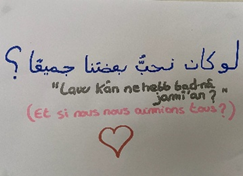 لو كان نحبُّ بعضنا جميعًا؟
"Law kân nehebb bađnâ
jamî'an?"
(Et si nous nous aimions tous?)